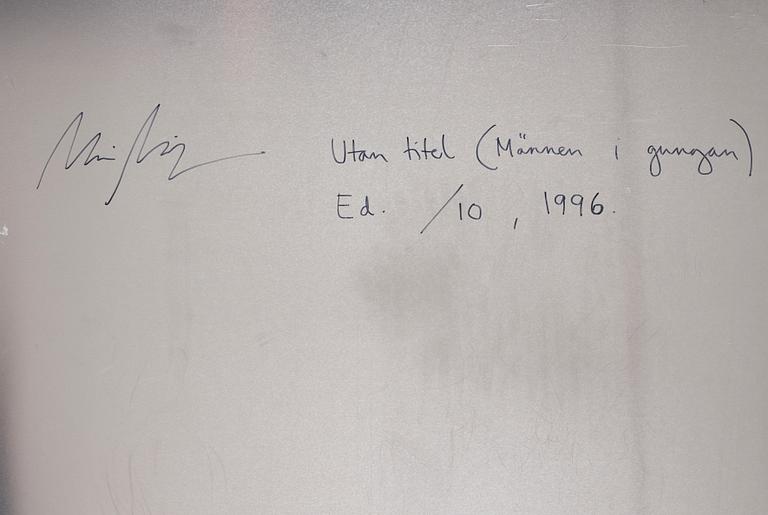 Utan titel (Männen i gungan)
Ed. /10, 1996.